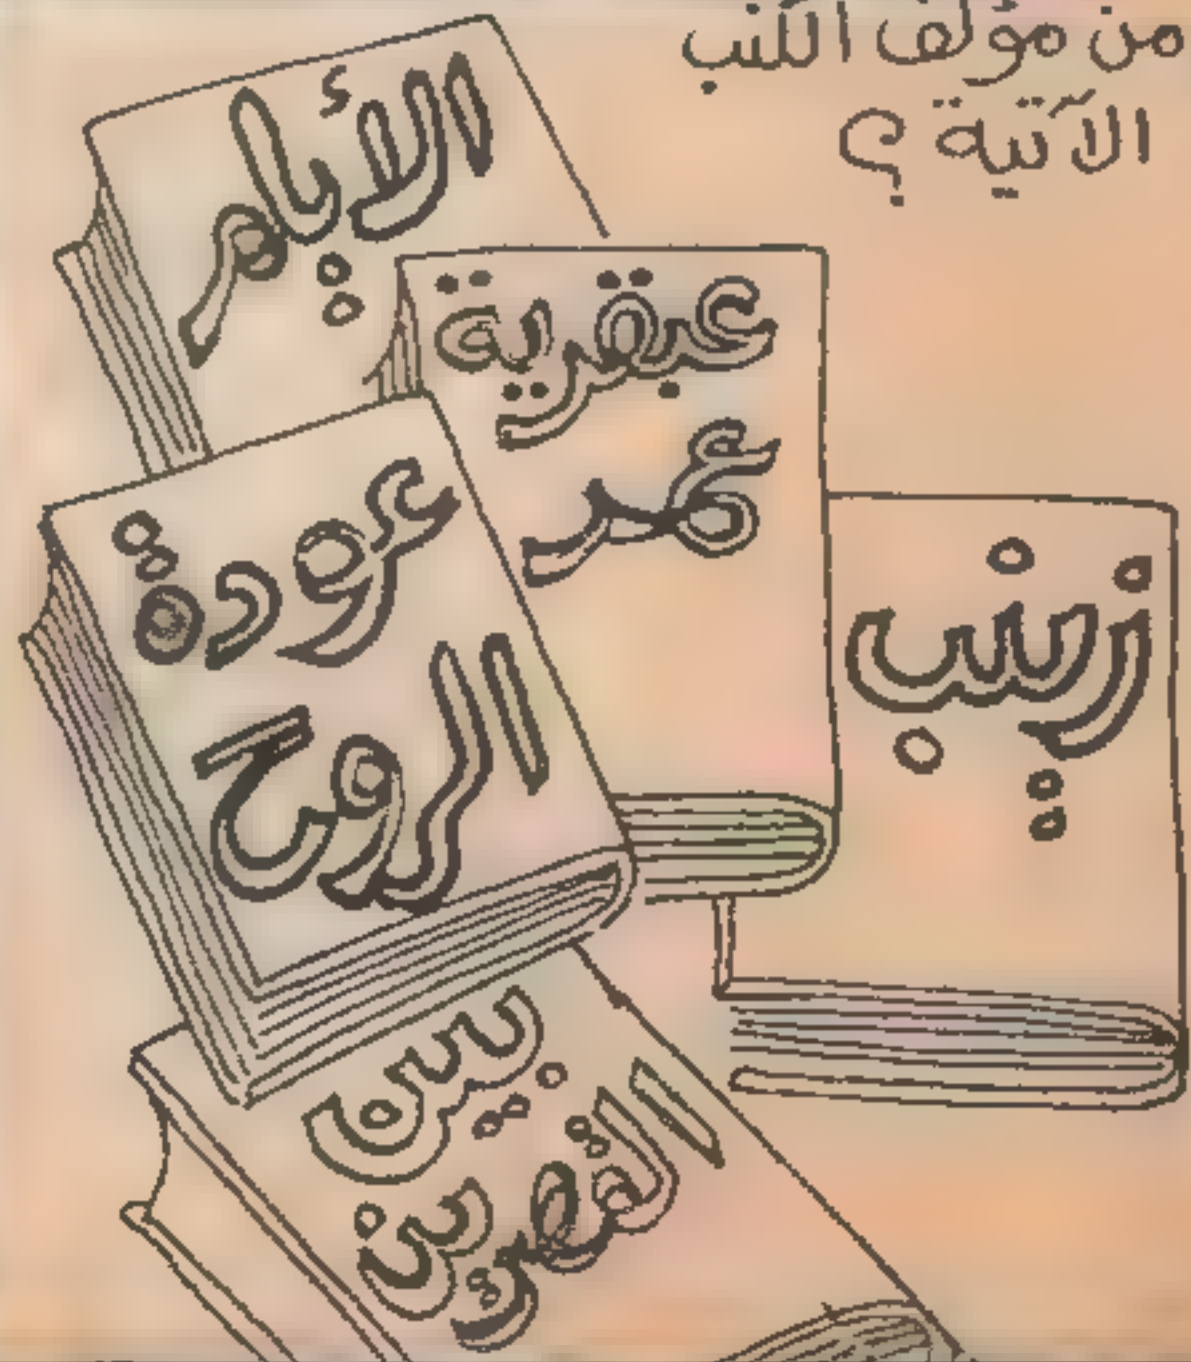 من مؤلف الكتب
الآتية ؟
الأيام
عبقرية
عمر
عودة
الروح
زينب
بين
القصرين